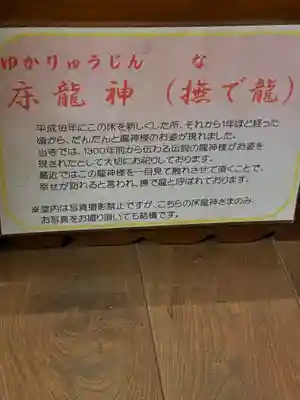 ゆかりゅうじん な
床龍神(撫で龍)
平成18年にこの床を新しくした所、それから1年ほど経った
頃から、だんだんと龍神様のお姿が現れました。
当寺では、1300年前から伝わる伝説の龍神様がお姿を
現されたとして大切にお祀りしております。
最近ではこの龍神様を一目見て触れさせて頂くことで、
幸せが訪れると言われ、撫で龍と呼ばれております。
※堂内は写真撮影禁止ですが、こちらの床龍神さまのみ、
お写真をお撮り頂いても結構です。